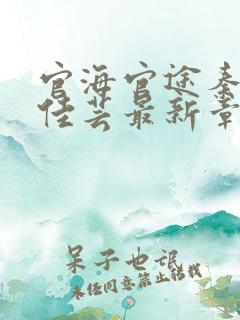 官海官途秦
佳芸最新章
呆子也诋
未经同意禁止转载